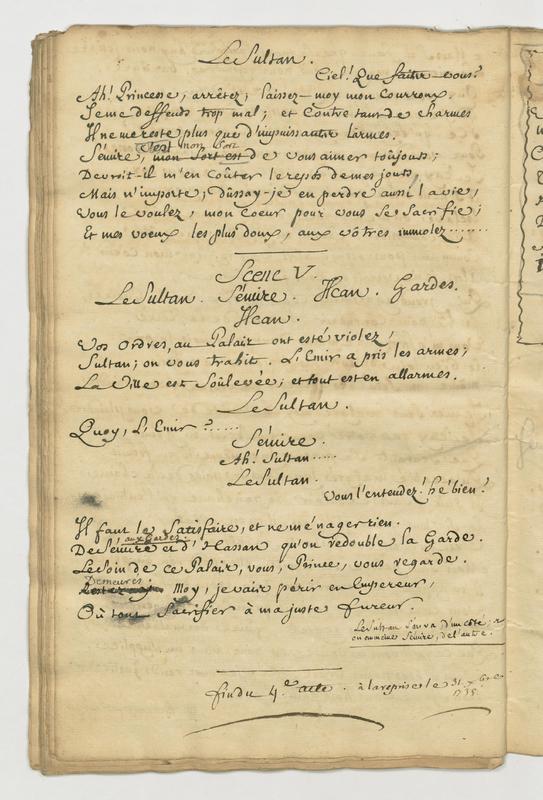 Le Sultan.
Ciel! Que faitte-vous?
Ah! Princesse, arrêtez; laissez-moy mon Courroux.
Je me deffends trop mal; et Contre tant de charmes
Il ne me reste plus que d'impuissantes larmes.
C'est mon Sort
Sémire, mon Sort est de vous aimer toûjours;
Devroit-il m'en coûter le repos de mes jours,
Mais n'importe; dûssay-je en perdre aussi la vie,
Vous le voulez, mon Coeur pour vous se Sacrifie;
Et mes voeux les plus doux, aux vôtres immolez........
Scene V.
Le Sultan. Sémire. Gardes.
Vos Ordres, au Palais ont esté violez,
Sultan; on vous trahit. L'Emir a pris les armes;
La Ville est Soûlevée; et tout est en allarmes.
Le Sultan.
Quoy, L'Emir ?.....
Sémire.
Ah! Sultan.....
Le Sultan.
Vous l'entendez! hé bien!
Il faut le Satisfaire, et ne ménager rien.
aux Gardes.
De Sémire et d'Hassan qu'on redouble la Garde.
Le Soin de ce Palais, vous, Prince, vous regarde.
Demeures.
Moy, je vais périr en Empereur,
Où tout Sacrifier à ma juste fureur.
Le Sultan S'en va d'un côté;
on emmene Sémire, de l'autre.
fin du 4.e acte. à la reprise le 31 xbre
1735.